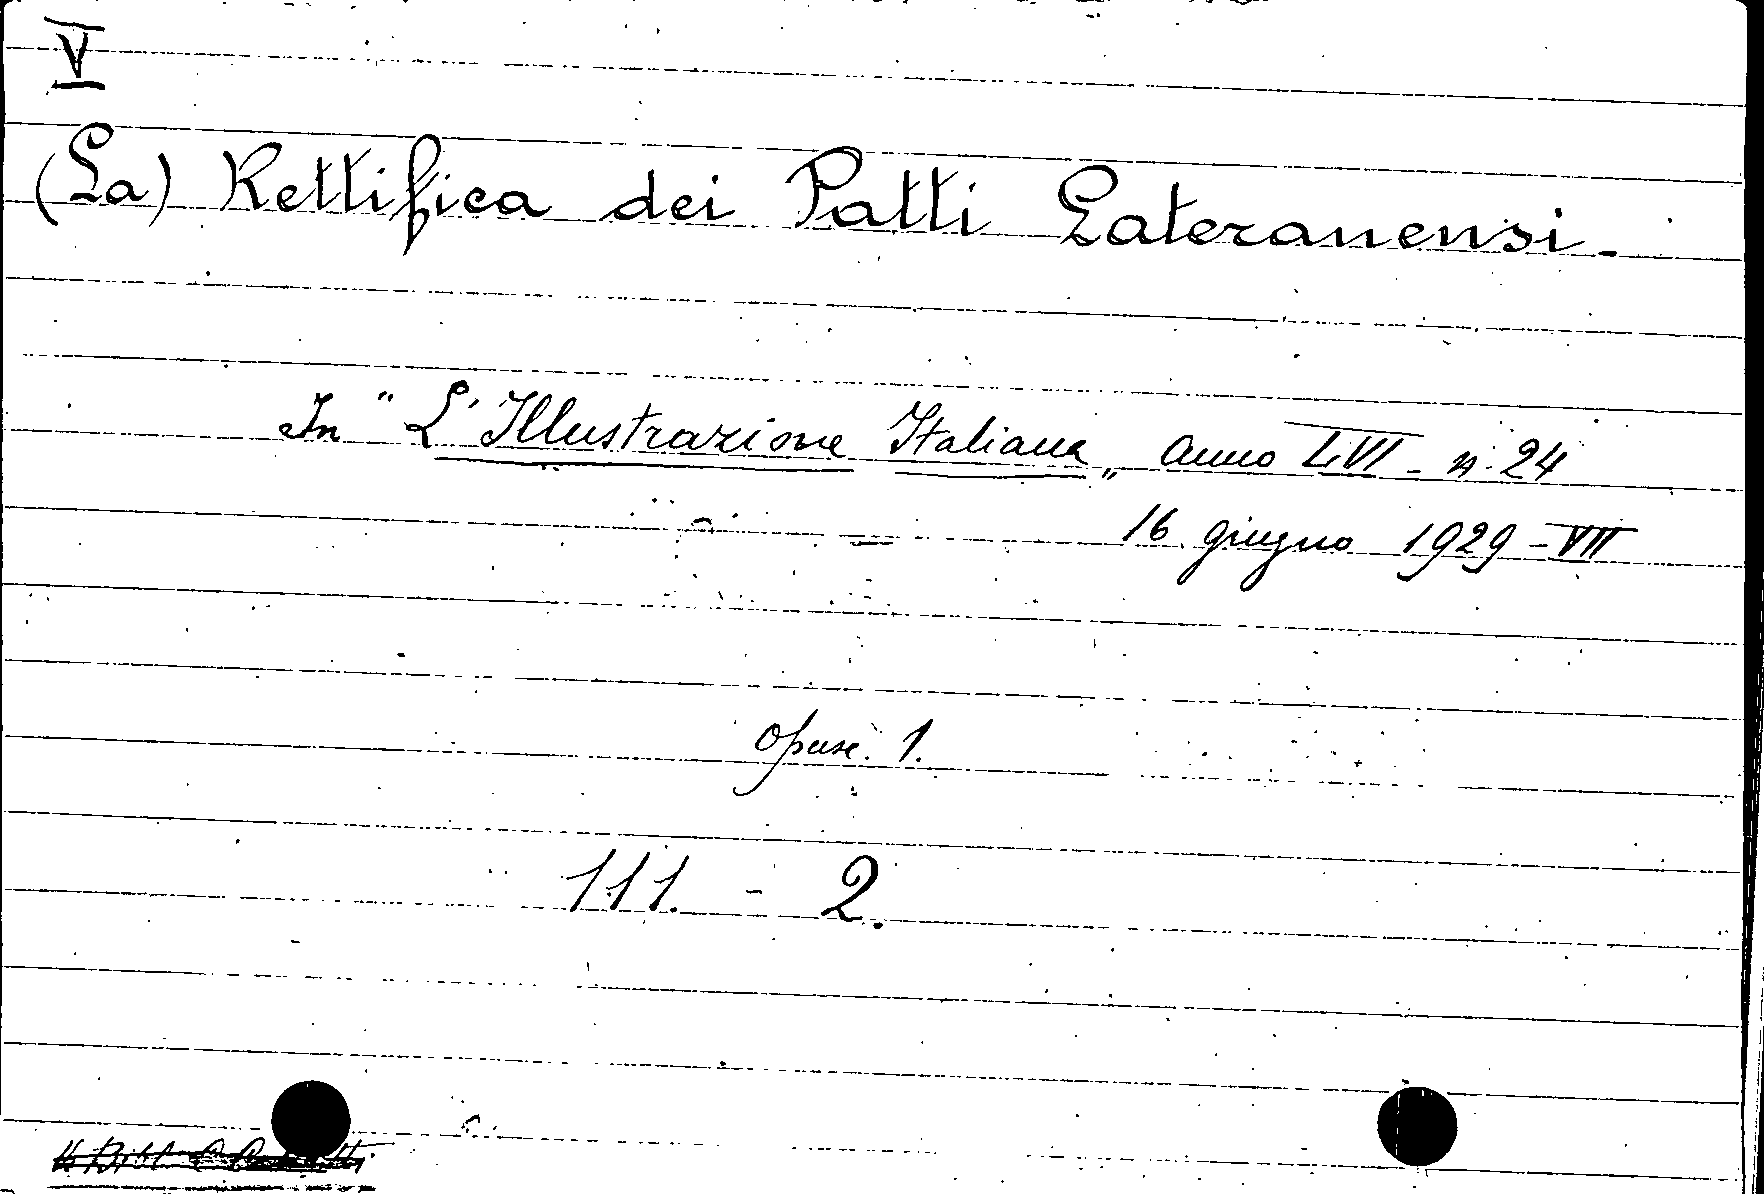 V
(La) Rettifica dei Patti Lateranensi.
In "L'Illustrazione Italiana„ anno LVI - n. 24
16 giugno 1929 - VII
Opusc. 1.
111. - 2.
Bibl.